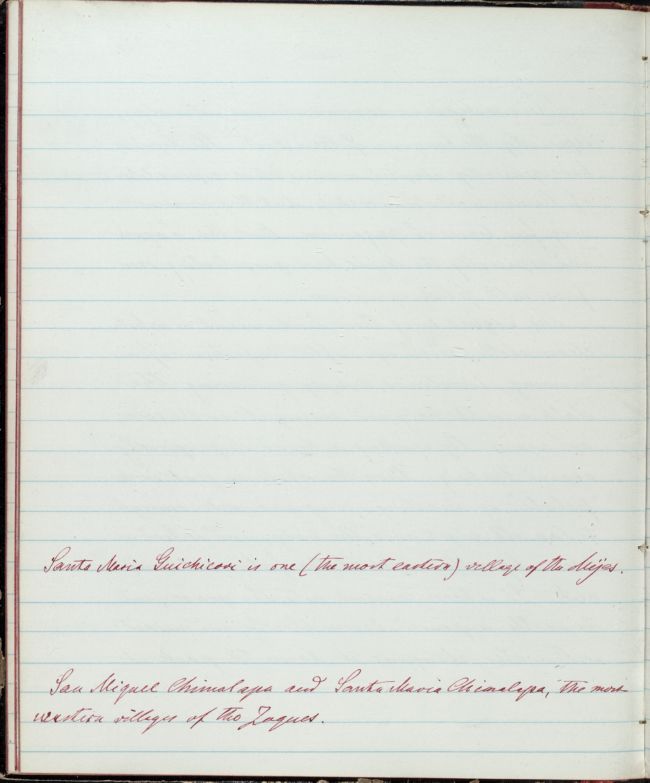 Santa Maria Guichicovi is one (the most eastern) village of the Mijes.
San Miguel Chimalapa and Santa Maria Chimalapa, the most
western villages of the Zoques.